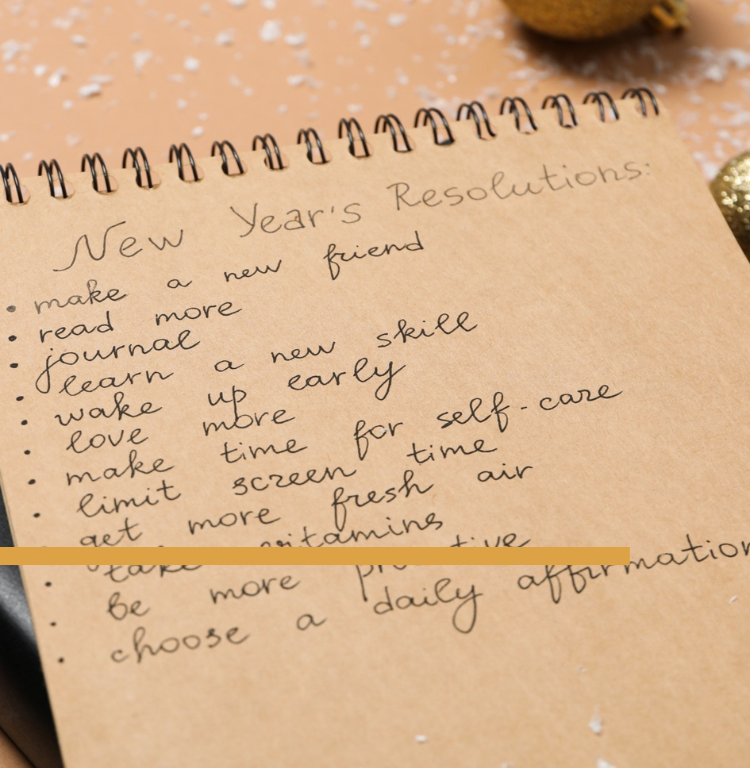 New Year's Resolutions:
• make a new friend
• read more
• journal
• learn a new skill
• wake up early
• love more
• make time for self-care
• limit screen time
get more fresh air
• take vitamins
• be more
• choose a daily affirmation